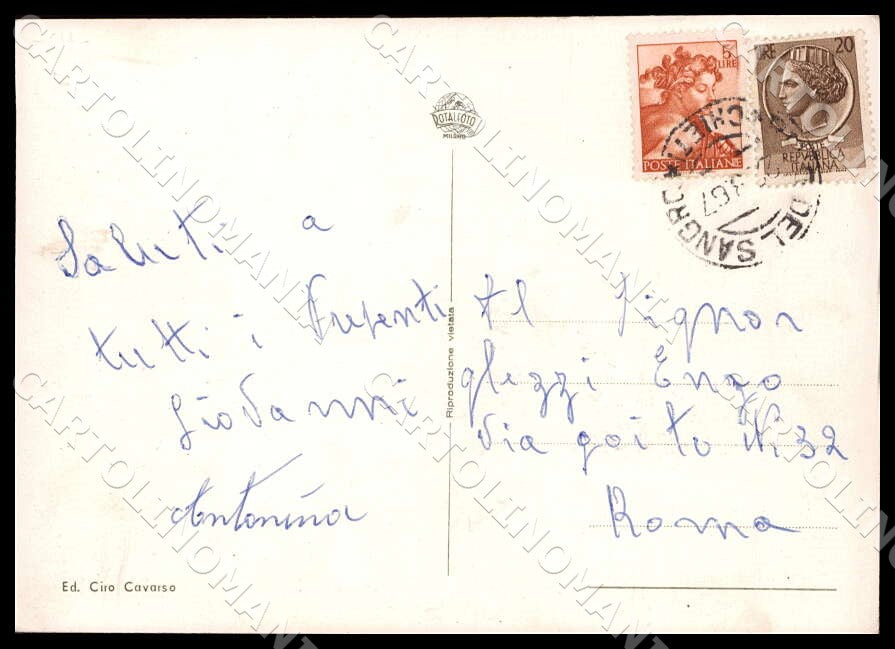 5
LIRE
POSTE ITALIANE
LIRE 20
REPVBBLICA
ITALIANA
CHIETI
DEL SANGRO
67
ROTALFOTO
MILANO
Saluti a
tutti i Presenti
Giovanni
Antonina
Riproduzione vietata
Al Signor
Enzo
Via goito N. 32
Roma
Ed. Ciro Cavarso
CARTOLINOMANIA